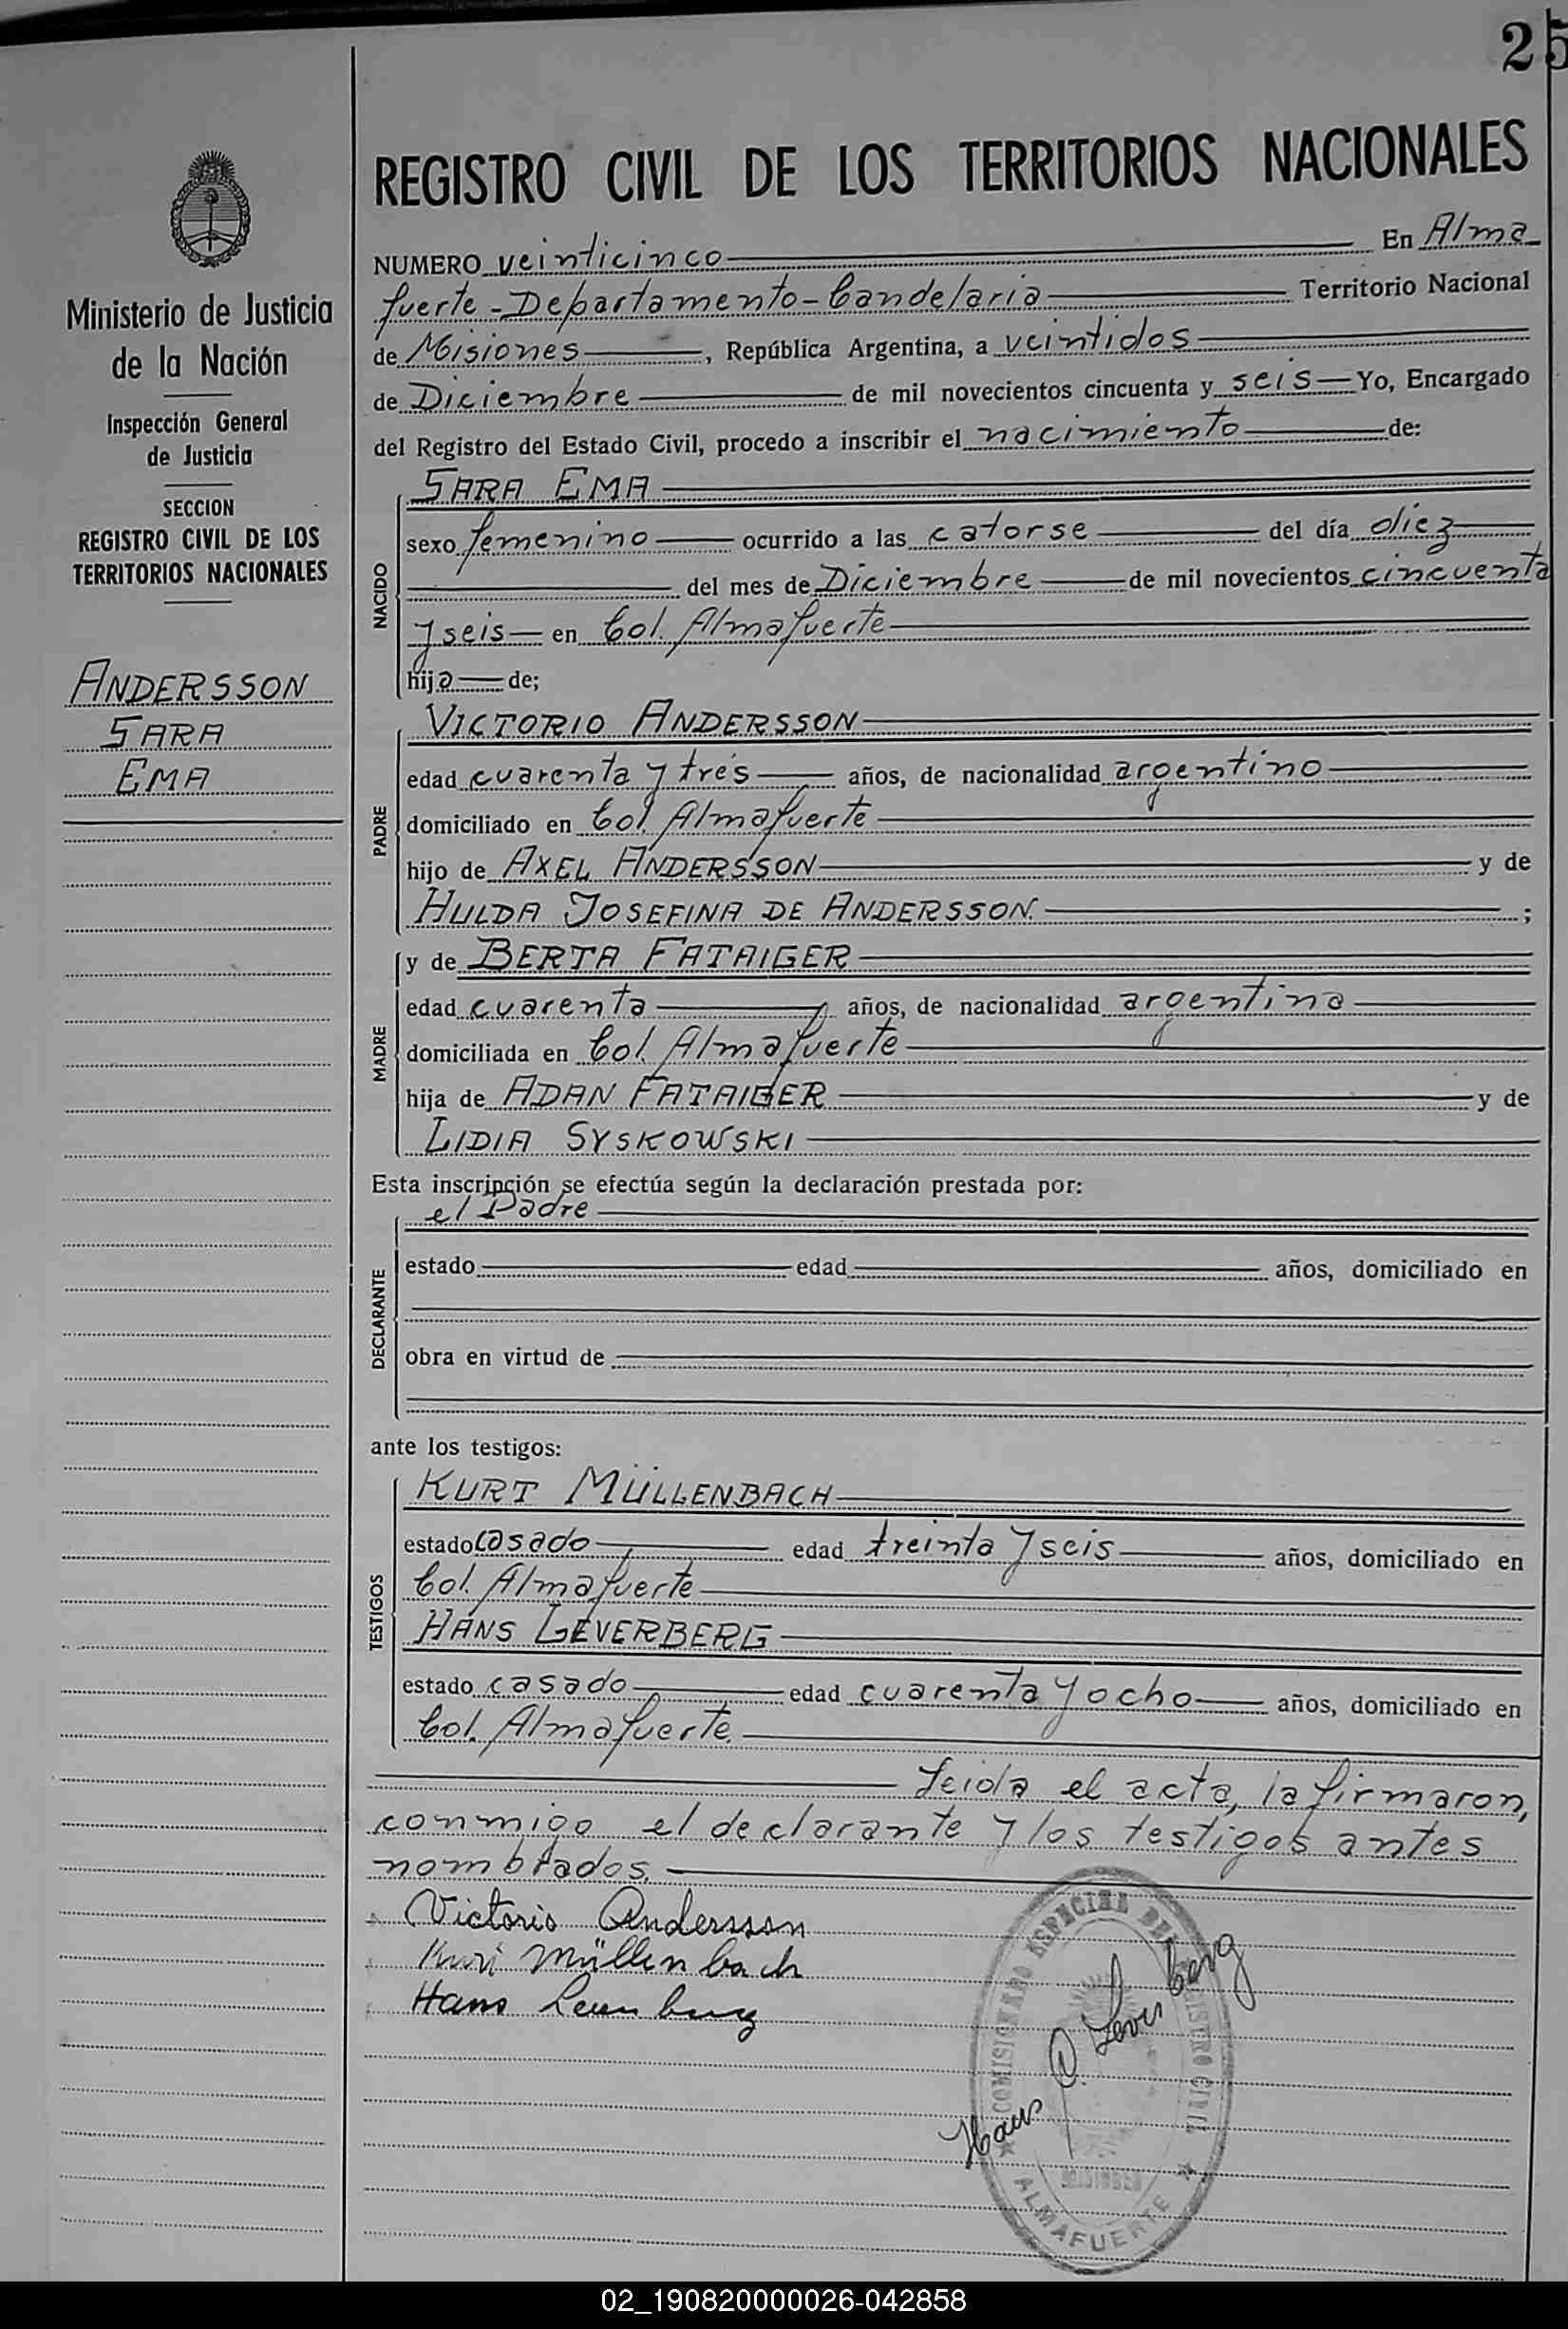 25
REGISTRO CIVIL DE LOS TERRITORIOS NACIONALES
Ministerio de Justicia
de la Nación
Inspección General
de Justicia
SECCION
REGISTRO CIVIL DE LOS
TERRITORIOS NACIONALES
ANDERSSON
SARA
EMA
NUMERO veinticinco En Alma
fuerte - Departamento - Candelaria Territorio Nacional
de Misiones, República Argentina, a veintidos
de Diciembre de mil novecientos cincuenta y seis Yo, Encargado
del Registro del Estado Civil, procedo a inscribir el nacimiento de:
NACIDO
SARA EMA
sexo femenino ocurrido a las catorse del día diez
del mes de Diciembre de mil novecientos cincuenta
y seis en Col. Almafuerte
hija de;
PADRE
VICTORIO ANDERSSON
edad cuarenta y tres años, de nacionalidad argentino
domiciliado en Col. Almafuerte
hijo de AXEL ANDERSSON y de
HULDA JOSEFINA DE ANDERSSON. ;
MADRE
y de BERTA FATAIGER
edad cuarenta años, de nacionalidad argentina
domiciliada en Col. Almafuerte
hija de ADAN FATAIGER y de
LIDIA SYSKOWSKI
Esta inscripción se efectúa según la declaración prestada por:
DECLARANTE
el Padre
estado edad años, domiciliado en
obra en virtud de
ante los testigos:
TESTIGOS
KURT MÜLLENBACH
estado casado edad treinta y seis años, domiciliado en
Col. Almafuerte
HANS LEVERBERG
estado casado edad cuarenta y ocho años, domiciliado en
Col. Almafuerte.
Leida el acta, la firmaron,
conmigo el declarante y los testigos antes
nombrados.
Victorio Andersson
Kurt Müllenbach
Hans Leverberg
Hans O. Leverberg
COMISIONADO ESPECIAL DEL REGISTRO CIVIL
MISIONES
ALMAFUERTE
02_190820000026-042858